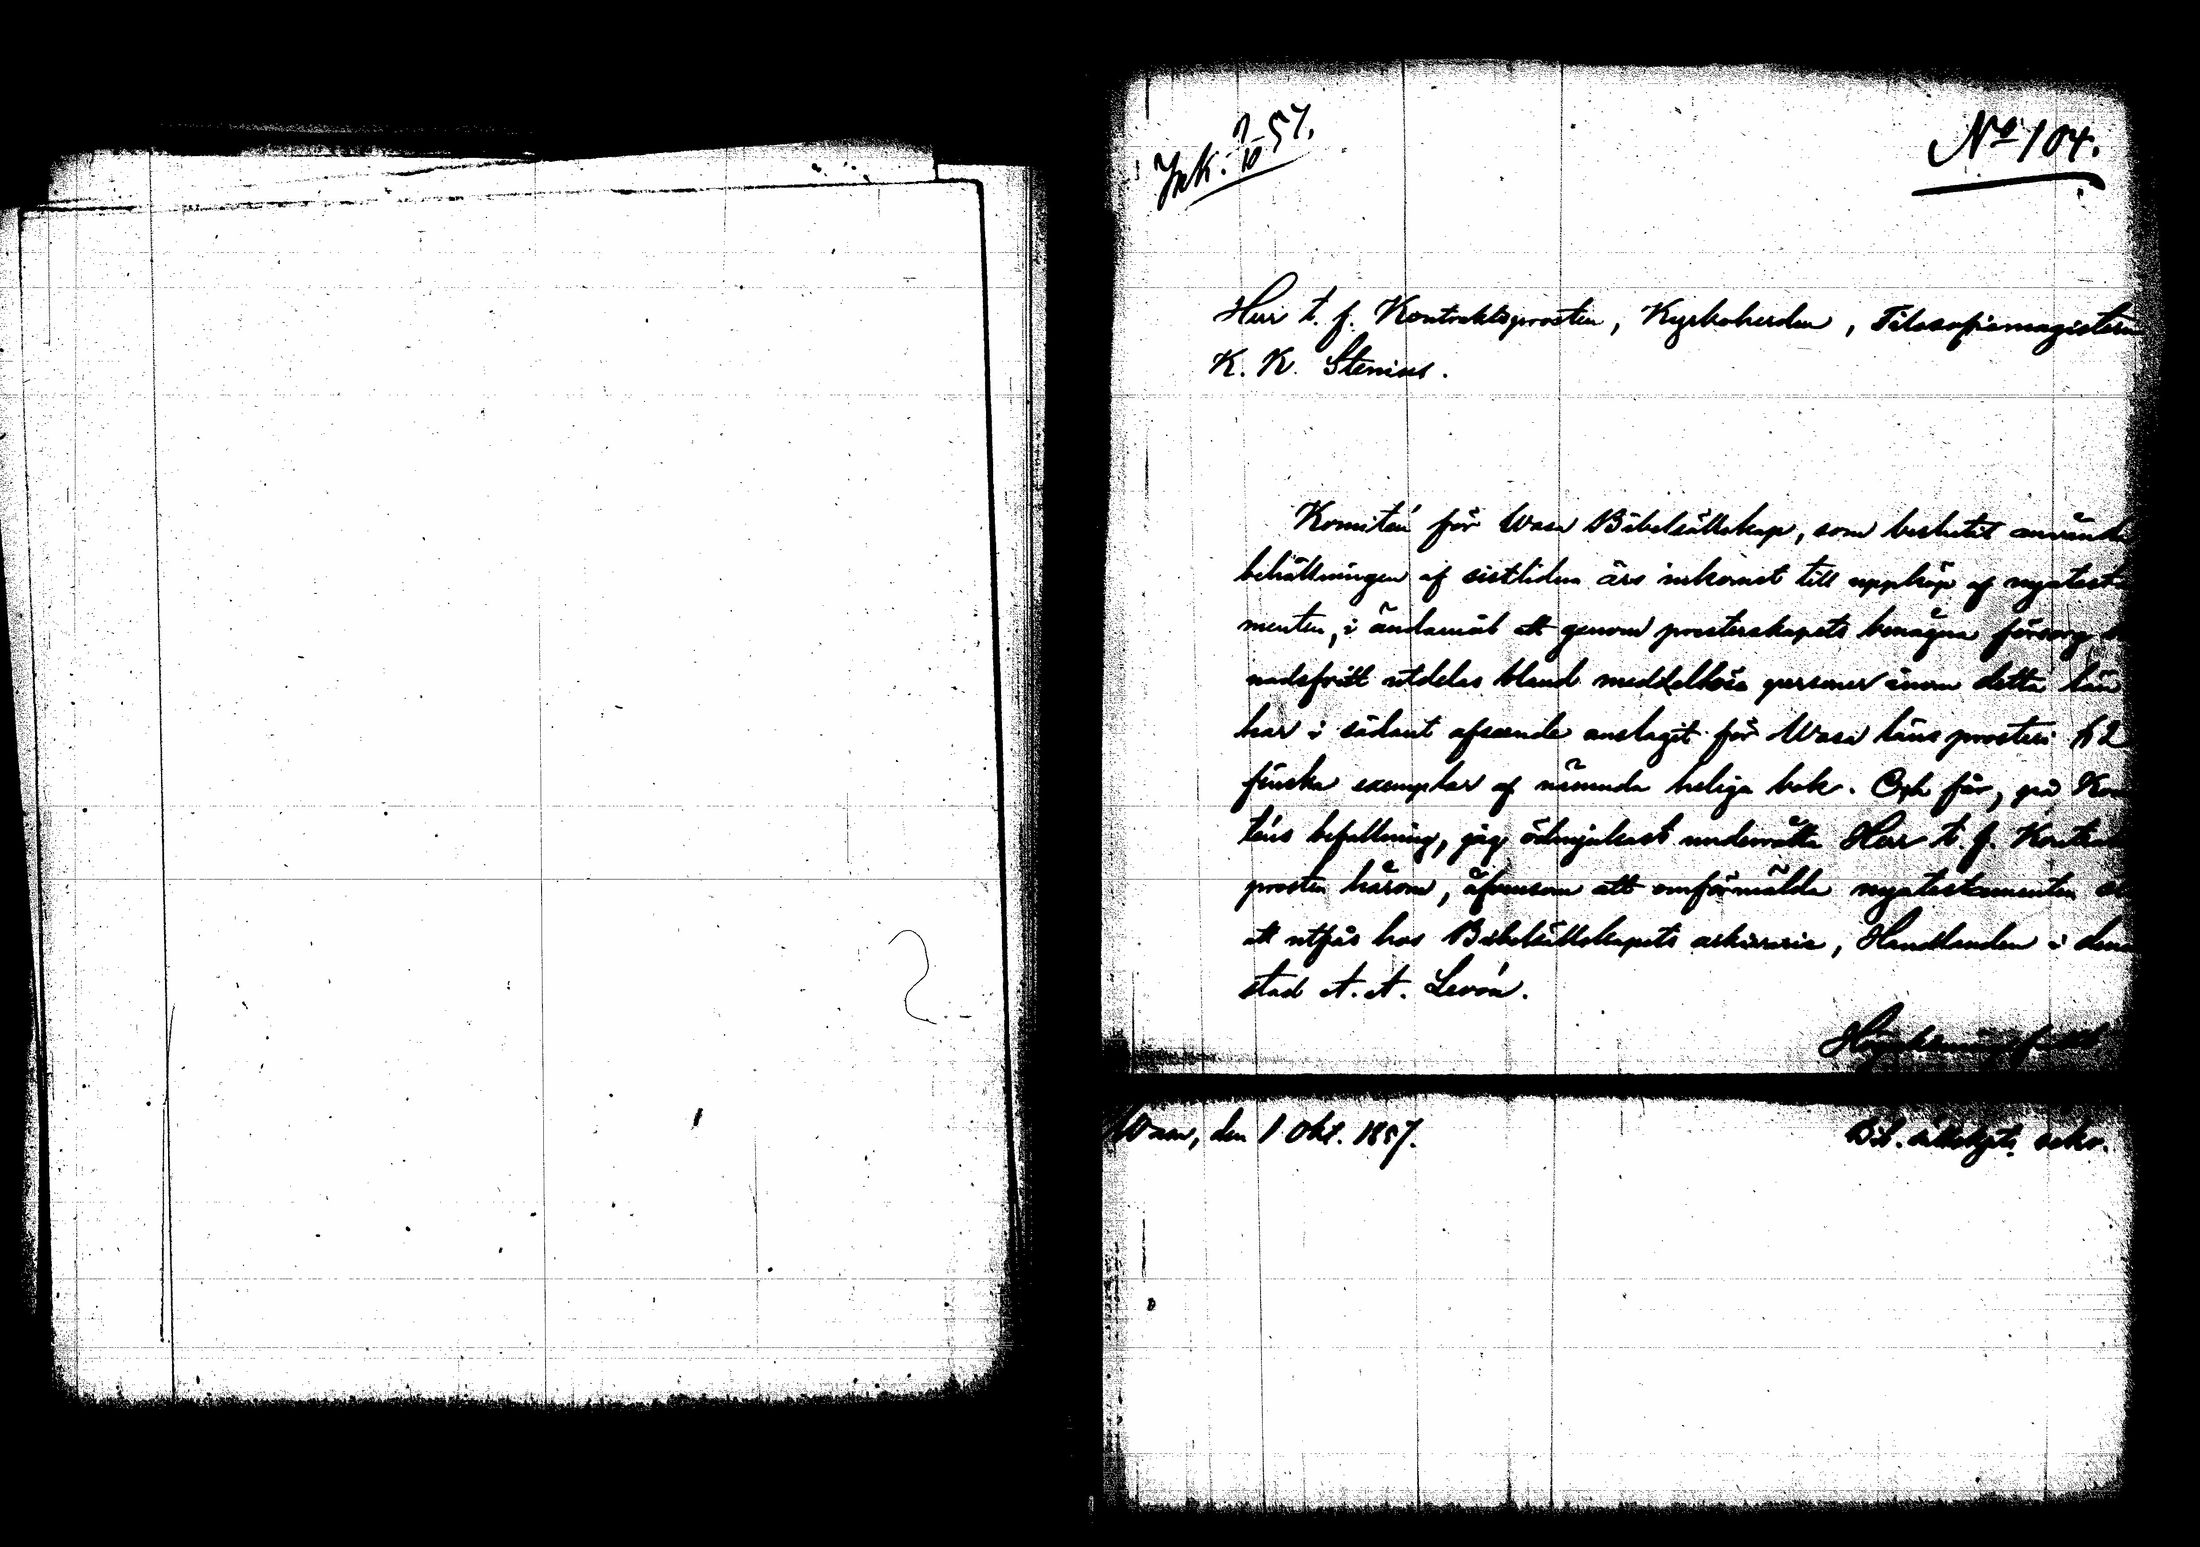 Ink. 7/10 57.
No 104.
Herr t. f. Kontraktsprosten, Kyrkoherden, Filosofiemagistern
K. K. Stenius.
Komitén för Wasa Bibelsällskap, som beslutit använda
behållningen af sistlidna års inkomst till uppköp af nyatesta
menten, i ändamål att genom presterskapets benägna försorg
nadsfritt utdelas bland medellösa personer inom detta län
har i sådant afseende anslagit för Wasa läns prosteri 62
finska exemplar af nämnda heliga bok. Och får, på Kom
téns befallning, jag ödmjukast underrätta Herr t. f. Kontrak
prosten härom, äfvensom att omförmälda nyatestamenten
att utfås hos Bibelsällskapets, Handlanden i denna
stad A. A. Levón.
Wasa, den 1 Okt. 1857.
Bib. sällskpts sekr.